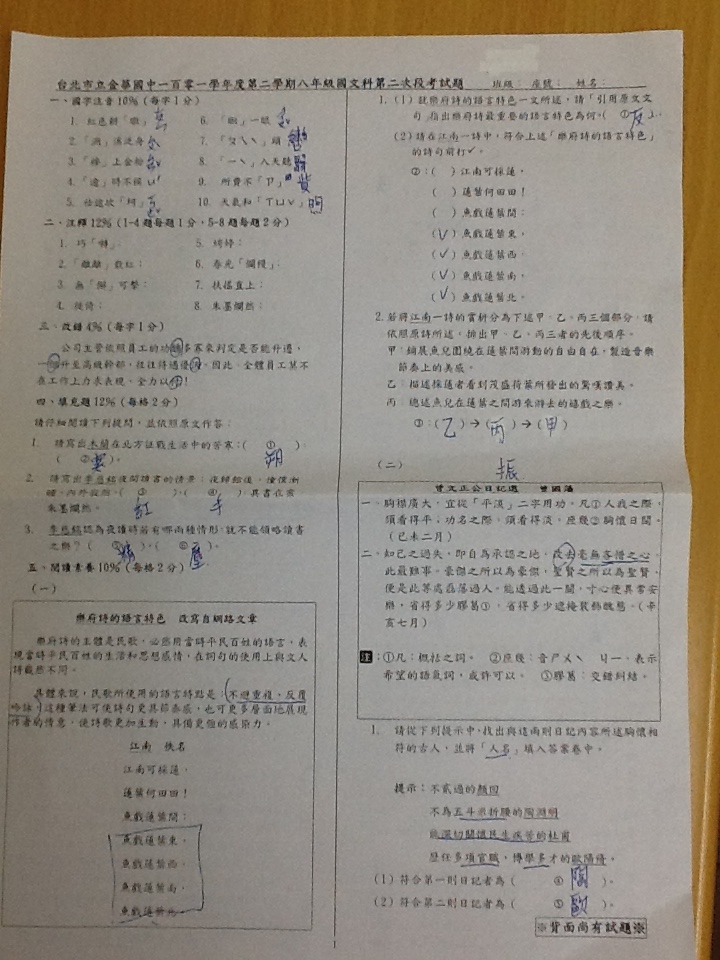 台北市立金華國中一百零一學年度第二學期八年級國文科第二次段考試題 班級： 座號： 姓名：
一、國字注音 10%（每字1分）
6.「瞅」一眼
7.「ㄆㄢˋ」頭
8.「ㄧˋ」八天聽
4.「逾」時不候
9. 所費不「ㄗ」 貲
5. 被逮歧「珂」
10. 天氣和「ㄒㄩˇ」
二、注釋 12%（1-4題每題1分，5-8題每題2分）
1. 巧「囀」： 5. 娉婷：
2.「離離」散紅： 6. 春光「爛慢」：
3. 無「懈」可擊： 7. 扶搖直上：
4. 從倚： 8. 朱墨爛然：
三、改錯 4%（每字1分）
公司主管依照員工的功績多寡來判定是否能升遷，
在工作上力求表現，全力以
四、填充題 12%（每格2分）
請仔細閱讀下列提問，並依照原文作答：
1. 請寫出木蘭在北方征戰生活中的苦寒：（ ① ）、
（ ② ）。 朔
2. 請寫出李慈銘夜間讀書的情景：夜歸館後，
朱墨爛然。 紅 卡
3. 李慈銘認為夜讀時若有哪兩種情形，就不能領略讀書
之樂？（ ⑤ ）、（ ⑥ ） 塵
五、閱讀素養 10%（每格2分）
（一）
樂府詩的語言特色 改寫自網路文章
樂府詩的主體是民歌，必然用當時平民百姓的語言，表
現當時平民百姓的生活和思想感情，在詞句的使用上與文人
詩截然不同。
具體來說，民歌所使用的語言特點是：不避重複，反覆
吟詠，這種筆法可使詩句更具節奏感，也可更多層面地展現
作者的情意，使詩歌更加生動，具備更強的感染力。
江南 佚名
江南可採蓮，
蓮葉何田田！
魚戲蓮葉間：
魚戲蓮葉東，
魚戲蓮葉西，
魚戲蓮葉南，
魚戲蓮葉北。
1
1.（1）就樂府詩的語言特色一文所述，請「引用原文文
句」指出樂府詩最重要的語言特色為何。（ ① 反 ）。
（2）請在江南一詩中，符合上述「樂府詩的語言特色」
的詩句前打✓。
②：（ ）江南可採蓮，
（ ）蓮葉何田田！
（ ）魚戲蓮葉間：
（✓）魚戲蓮葉東，
（✓）魚戲蓮葉西，
（✓）魚戲蓮葉南，
（✓）魚戲蓮葉北。
2. 若將江南一詩的賞析分為下述甲、乙、丙三個部分，請
依照原詩所述，排出甲、乙、丙三者的先後順序。
甲：鋪展魚兒圍繞在蓮葉間游動的自由自在，製造音樂
節奏上的美感。
乙：描述採蓮者看到茂盛荷葉所發出的驚嘆讚美。
丙：總述魚兒在蓮葉之間游來游去的嬉戲之樂。
③：（乙）→（丙）→（甲）
（二） 振
曾文正公日記選 曾國藩
一、胸襟廣大，宜從「平淡」二字用功。凡①人我之際，
須看得平；功名之際，須看得淡，庶幾②胸懷日闊。
（己未二月）
二、知己之過失，即自為承認之地，改去毫無吝惜之心，
此最難事。豪傑之所以為豪傑，聖賢之所以為聖賢，
便是此等處磊落過人。能透過此一關，寸心便異常安
樂，省得多少膠葛③，省得多少遮掩裝飾醜態。（辛
亥七月）
註：①凡：概括之詞。 ②庶幾：音ㄕㄨˋ ㄐㄧ，表示
希望的語氣詞，或許可以。 ③膠葛：交錯糾結。
1. 請從下列提示中，找出與這兩則日記內容所述胸懷相
符的古人，並將「人名」填入答案卷中。
提示：不貳過的顏回
不為五斗米折腰的陶淵明
能深切關懷民生疾苦的杜甫
歷任多項官職，博學多才的歐陽脩。
（1）符合第一則日記者為（ ④ 陶 ）。
（2）符合第二則日記者為（ ⑤ 歐 ）。
※背面尚有試題※